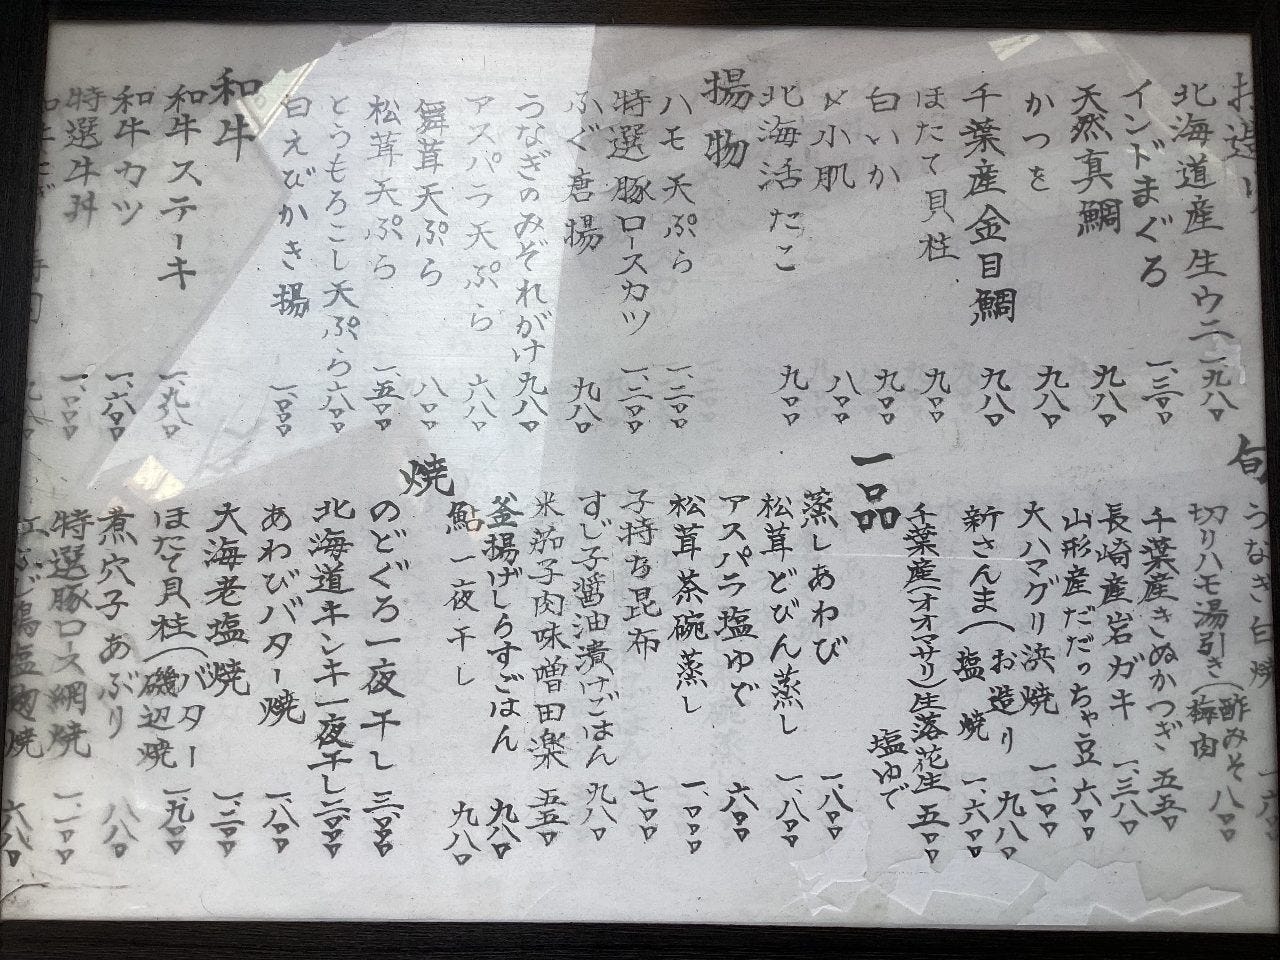 お造り
北海道産生ウニ 一、九八〇
インドまぐろ 一、三〇〇
天然真鯛 九八〇
かつを 九八〇
千葉産金目鯛 九八〇
ほたて貝柱 九〇〇
白いか 九〇〇
〆小肌 八〇〇
北海活たこ 九〇〇
揚物
ハモ天ぷら 一、二〇〇
特選豚ロースカツ 一、二〇〇
ふぐ唐揚 九八〇
うなぎのみぞれがけ 九八〇
アスパラ天ぷら 六八〇
舞茸天ぷら 八〇〇
松茸天ぷら 一、五〇〇
とうもろこし天ぷら 六八〇
白えびかき揚 一、〇〇〇
和牛
和牛ステーキ 一、九八〇
和牛カツ 一、六〇〇
特選牛丼 一、〇〇〇
旬
うなぎ白焼
切りハモ湯引き(酢みそ 梅肉 八〇〇
千葉産きぬかつぎ 五五〇
長崎産岩ガキ 一、三八〇
山形産だだっちゃ豆 六〇〇
大ハマグリ浜焼 一、二〇〇
新さんま(お造り 九八〇
塩焼 一、六〇〇
千葉産(オオマサリ)生落花生 五〇〇
塩ゆで
一品
蒸しあわび 一、八〇〇
松茸どびん蒸し 一、八〇〇
アスパラ塩ゆで 六〇〇
松茸茶碗蒸し 一、〇〇〇
子持ち昆布 七〇〇
すじ子醤油漬けごはん 九八〇
米茄子肉味噌田楽 五五〇
釜揚げしらすごはん 九八〇
鮎一夜干し 九八〇
焼
のどぐろ一夜干し 三、〇〇〇
北海道キンキ一夜干し 三、〇〇〇
あわびバター焼 一、八〇〇
大海老塩焼 一、三〇〇
ほたて貝柱(バター 磯辺焼 一、九〇〇
煮穴子あぶり 八八〇
特選豚ロース網焼 一、二〇〇
六八〇